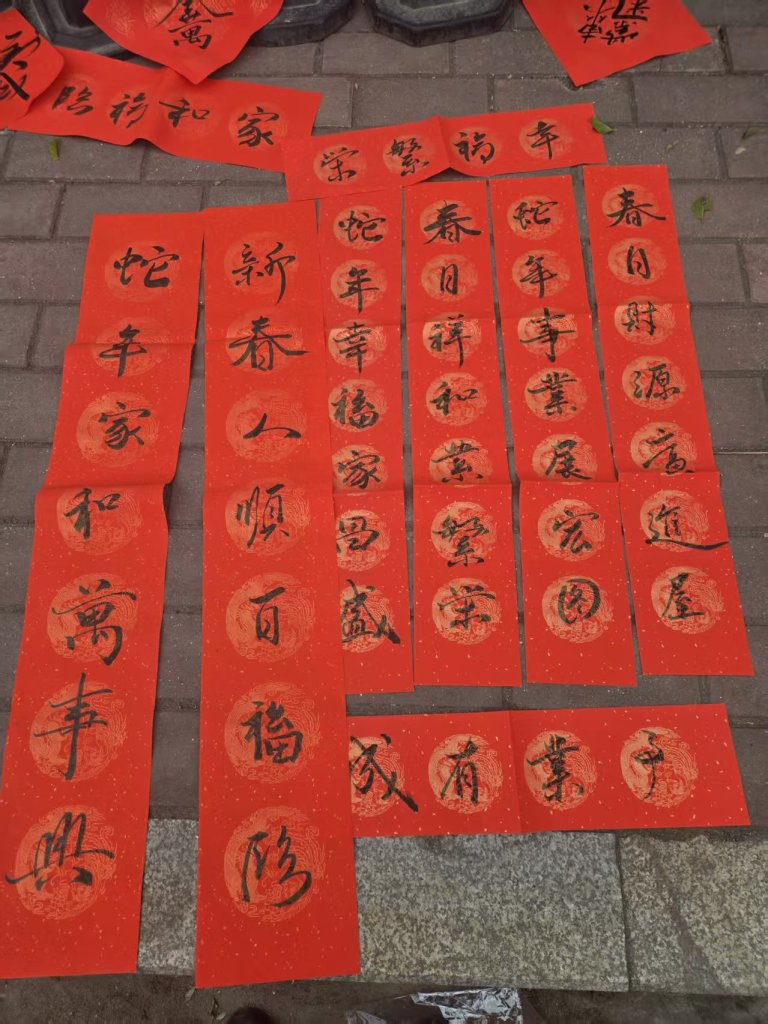 家和福臨
幸福繁榮
春日財源廣進屋
蛇年事業展宏图
春日祥和業繁榮
蛇年幸福家昌盛
新春人順百福臨
蛇年家和萬事興
事業有成